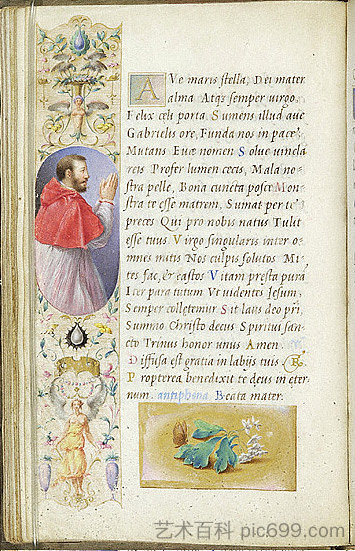 AVe maris stella, Dei mater
alma Atq; semper virgo,
Felix celi porta Sumens illud aue
Gabrielis ore, Funda nos in pace
Mutans Euæ nomen Solue vincla
reis Profer lumen cecis, Mala no-
stra pelle, Bona cuncta posce Mon
stra te esse matrem, Sumat per te
preces Qui pro nobis natus Tulit
esse tuus Virgo singularis inter o-
mnes mitis Nos culpis solutos Mi
tes fac, & castos Vitam presta pura
Iter para tutum Vt videntes Jesum,
Semper colletemur Sit laus deo pri,
Summo Christo decus Spiritui san-
cto Trinus honor unus Amen.
Diffusa est gratia in labijs tuis. R
Propterea benedixit te deus in eter
num. antiphona Beata mater.
艺术百科 pic699.com